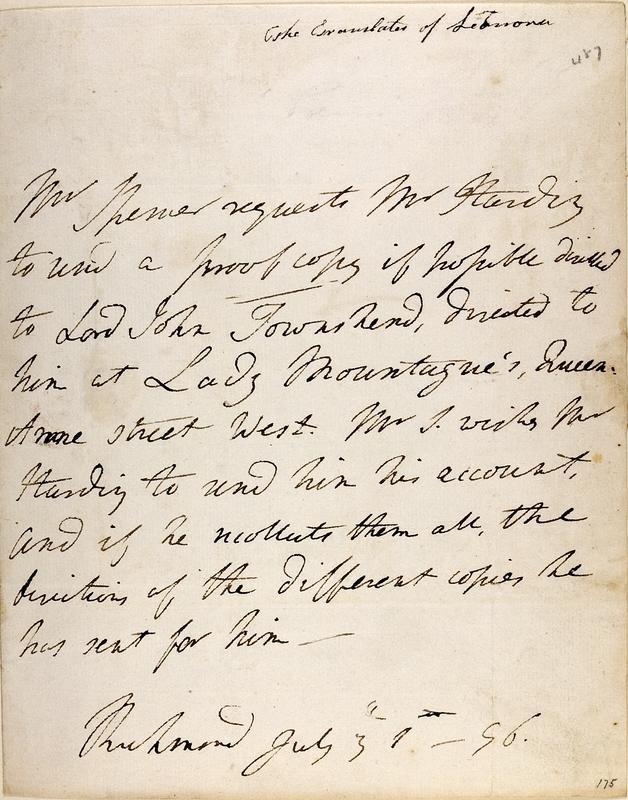 The Translator of Leonora
487
Mr Spencer requests Mr Harding
to send a proof copy if possible directed
to Lord John Townshend, directed to
him at Lady Mountague's, Queen-
Anne street West. Mr S. wishes Mr
Harding to send him his account,
and if he recollects them all, the
directions of the different copies he
has sent for him —
Richmond July 1st — 96.
175